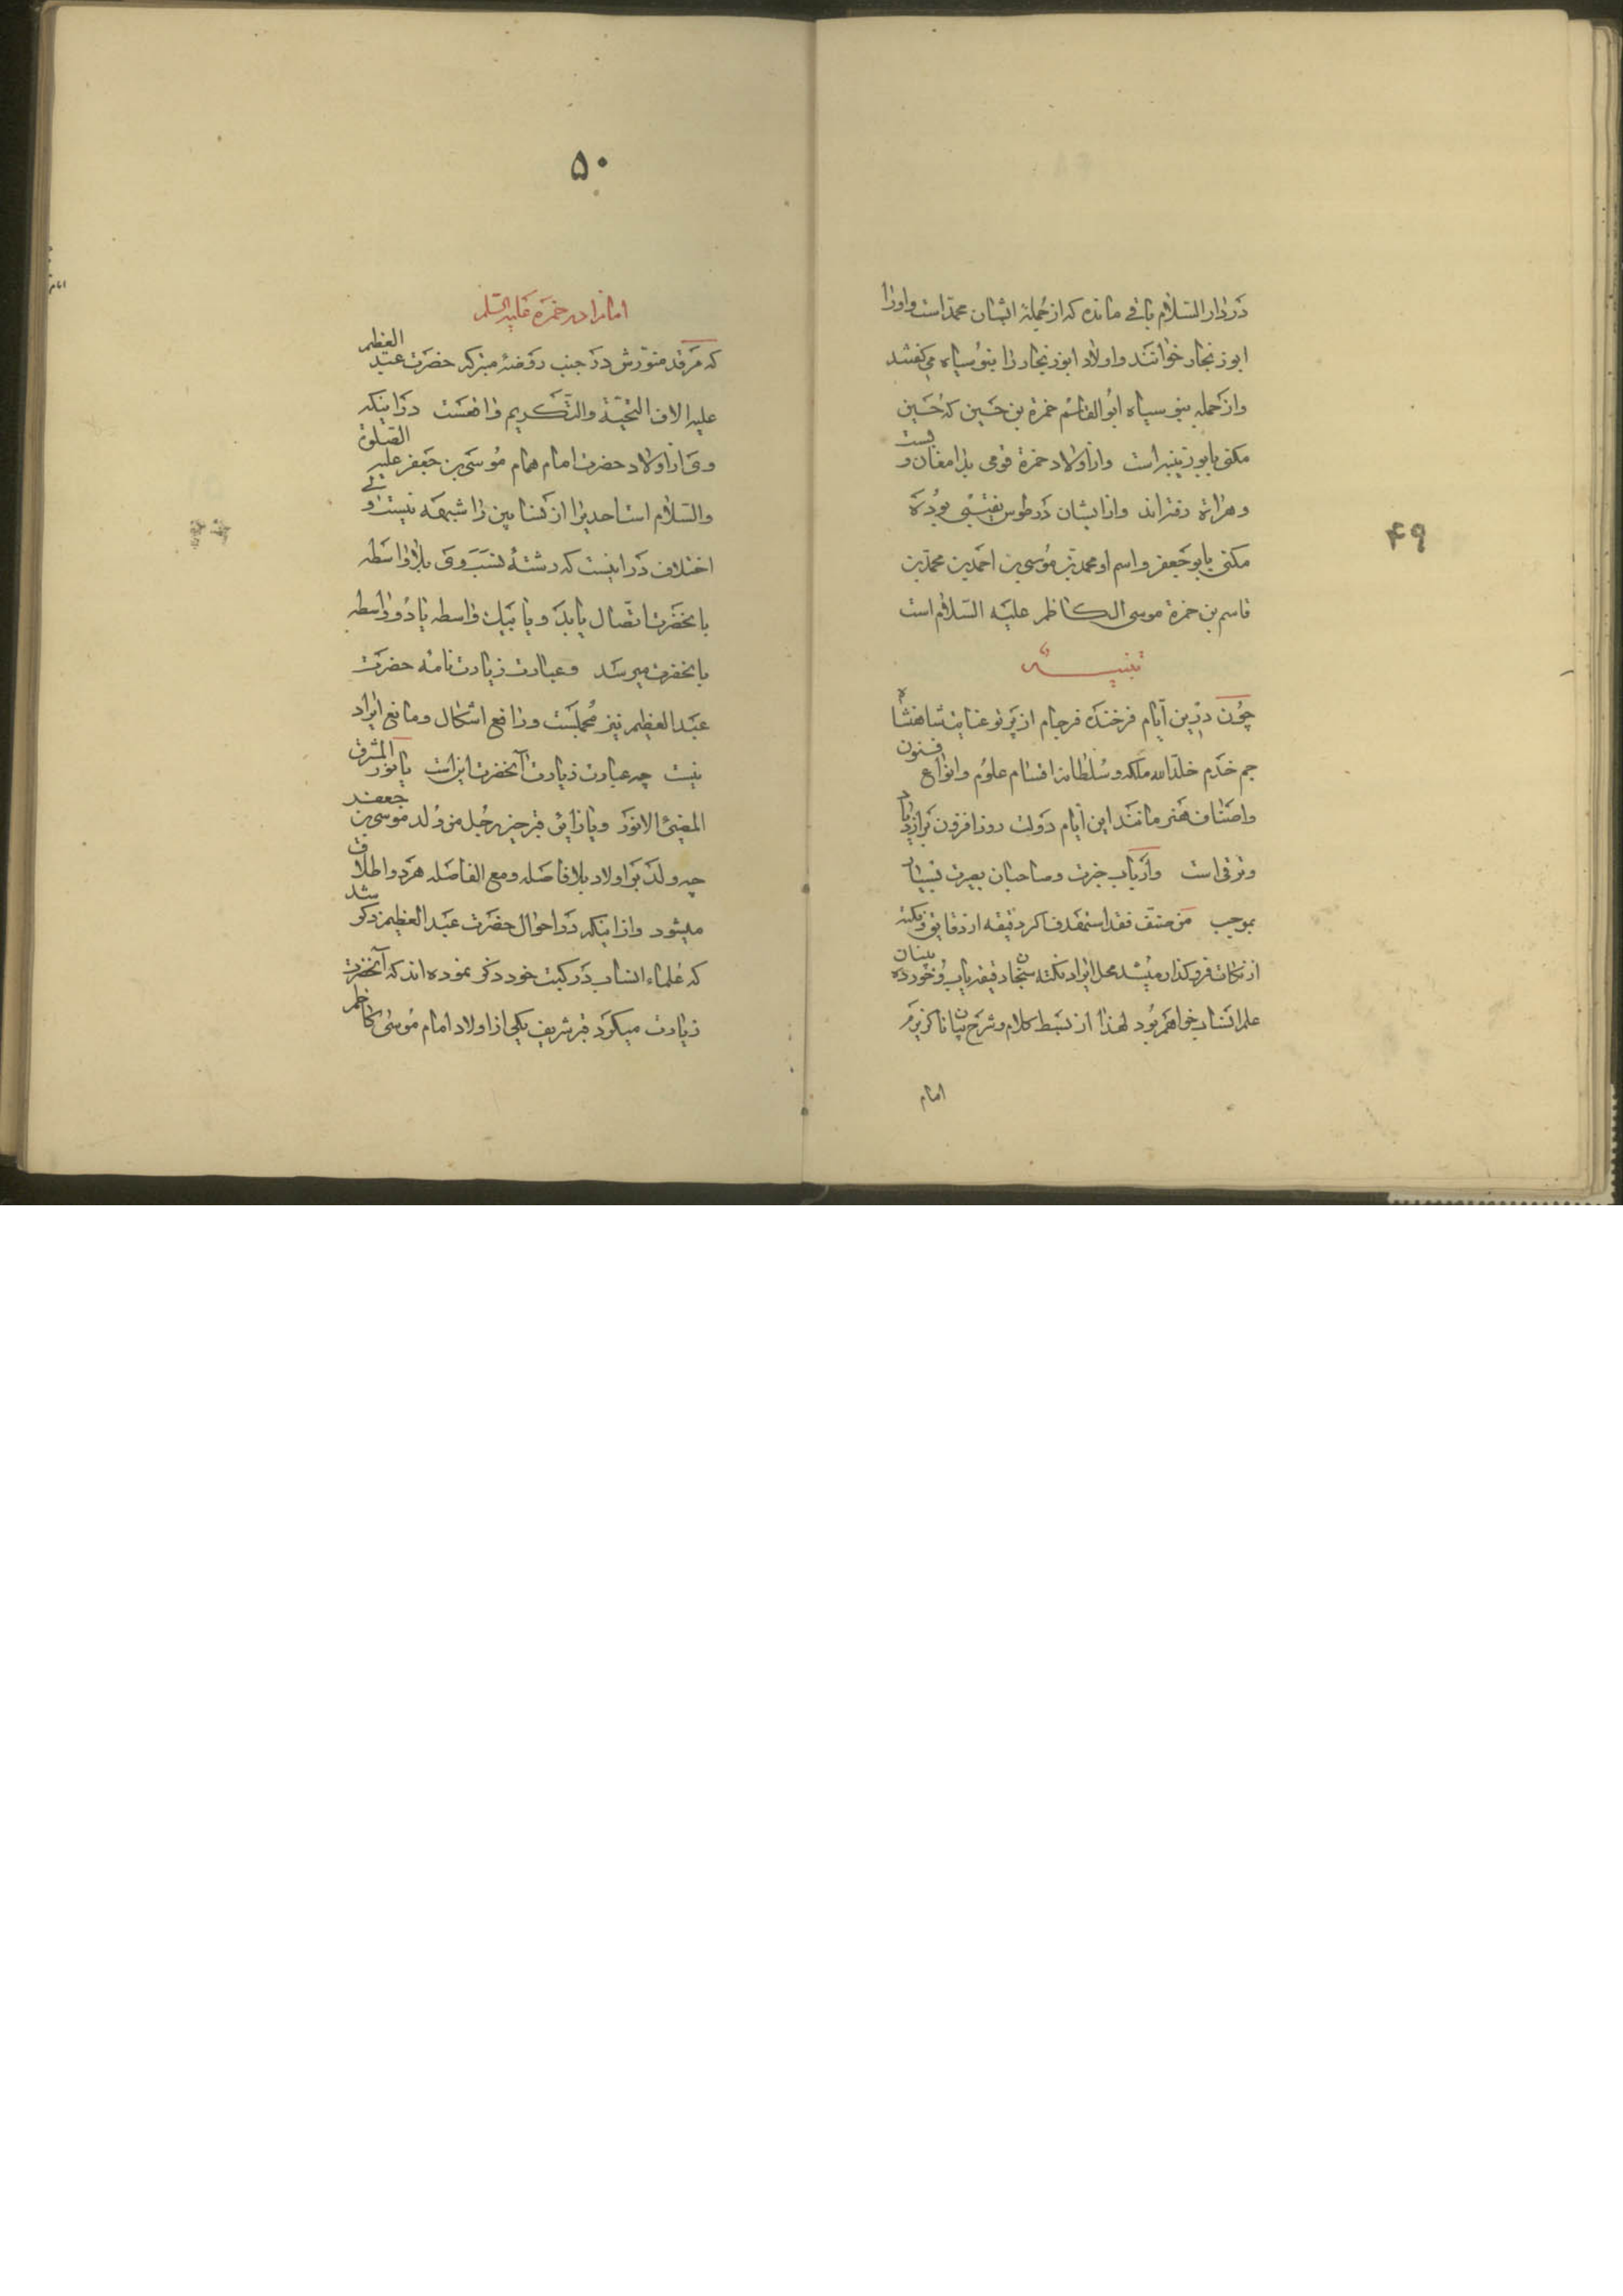 ۴۹
در دارالسلام باقی مانده که از جمله ایشان محمد است و او را
ابوزنجار خوانند و اولاد ابوزنجار را بنو سیاه می گفتند
و از جمله بنو سیاه ابوالقاسم حمزة بن حسین که حسین
مکنی بابوزینبه است و از اولاد حمزة قومی بدامغان و بست
و هراة رفته‌اند و از ایشان در طوس نقیبی بوده
مکنی بابوجعفر و اسم او محمد بن موسی بن احمد بن محمد بن
قاسم بن حمزة موسی الکاظم علیه السلام است
تنبیه
چون درین ایام فرخنده فرجام از پرتو عنایت شاهنشاه
جم خدم خلدالله ملکه و سلطانه اقسام علوم و انواع فنون
و اصناف هنر مانند این ایام دولت روز افزون در ازدیاد
و ترقی است و ارباب خبرت و صاحبان بصیرت بسیار
بموجب من صنف فقد استهدف اگر دقیقه از دقایق و نکته
از نکات فروگذار میشد محل ایراد نکته سنجان دقیقه یاب و خورده بینان
علم انساب خواهم بود لهذا از بسط کلام و شرح بیان ناگزیرم
امام
۵۰
امامزاده حمزه علیه السلم
که مرقد منورش در جنب روضه متبرکه حضرت عبد العظیم
علیه الاف التحیة والتکریم واقعست در اینکه
وی از اولاد حضرت امام همام موسی بن جعفر علیه الصلوة
والسلام است احدی را از نسابین را شبهه نیست ولی
اختلاف در اینست که رشته نسب وی بلاواسطه
بانحضرت اتصال یابد و یا بیک واسطه یا دو واسطه
بانحضرت میرسد و عبارت زیارت نامه حضرت
عبدالعظیم نیز مجملست و رافع اشکال و مانع ایراد
نیست چه عبارت زیارت آنحضرت این است یا نور المشرق
المضئ الانور و یا زایر قبر خیر رجل من ولد موسی بن جعفر
چه ولد بر اولاد بلافاصله و مع الفاصله هر دو اطلاق
میشود و از اینکه در احوال حضرت عبدالعظیم ذکر شد
که علماء انساب در کتب خود ذکر نموده اند که آنحضرت
زیارت میکرد قبر شریف یکی از اولاد امام موسی کاظم